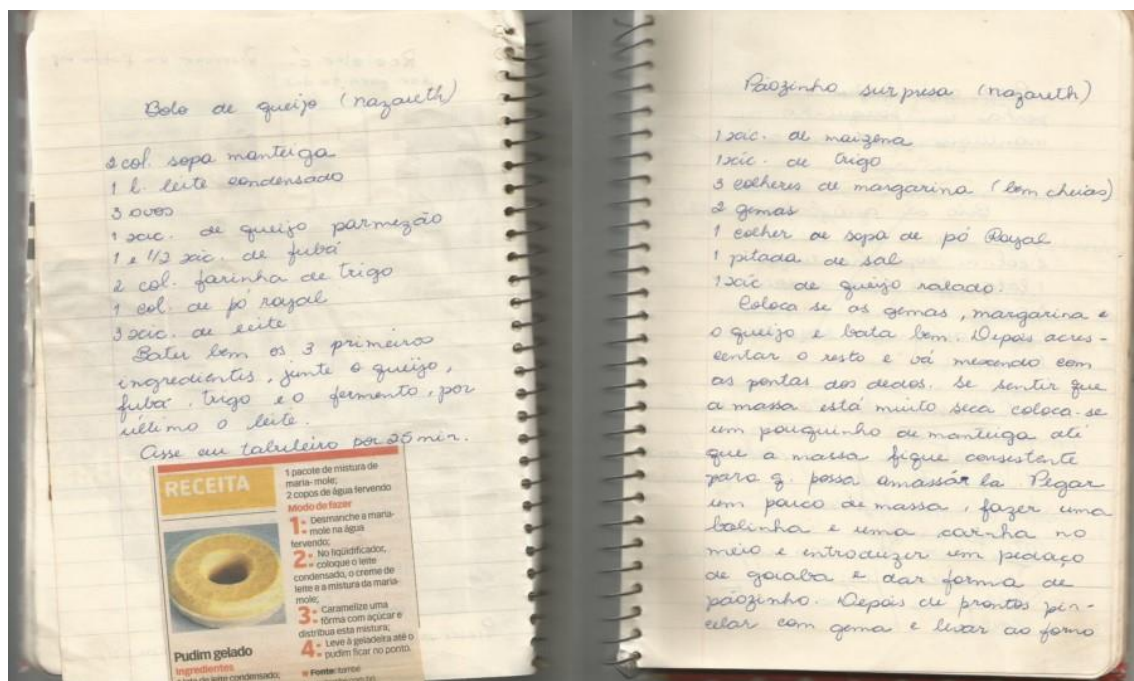 Bolo de queijo (nazareth)
2 col. sopa manteiga
1 l. leite condensado
3 ovos
1 xic. de queijo parmezão
1 e 1/2 xic. de fubá
2 col. farinha de trigo
1 col. de pó royal
3 xic. de leite
Bater bem os 3 primeiros
ingredientes, junte o queijo,
fubá, trigo e o fermento, por
último o leite.
Asse em tabuleiro por 25 min.
RECEITA
Pudim gelado
Ingredientes
de leite condensado;
1 pacote de mistura de
maria- mole;
2 copos de água fervendo
Modo de fazer
1: Desmanche a maria-
mole na água
fervendo;
2: No liqüidificador,
coloque o leite
condensado, o creme de
leite e a mistura da maria-
mole;
3: Caramelize uma
fôrma com açúcar e
distribua esta mistura;
4: Leve à geladeira até o
pudim ficar no ponto.
Fonte:
Pãozinho surpresa (nazareth)
1 xic. de maizena
1 xic. de trigo
3 colheres de margarina (bem cheias)
2 gemas
1 colher de sopa de pó Royal
1 pitada de sal
1 xic de queijo ralado.
Coloca se as gemas, margarina e
o queijo e bata bem. Depois acres-
centar o resto e vá mexendo com
as pontas dos dedos. Se sentir que
a massa está muito seca coloca-se
um pouquinho de manteiga até
que a massa fique consistente
para q. possa amassá-la. Pegar
um pouco de massa, fazer uma
bolinha e uma covinha no
meio e introduzir um pedaço
de goiaba e dar forma de
pãozinho. Depois de prontos pin-
celar com gema e levar ao forno